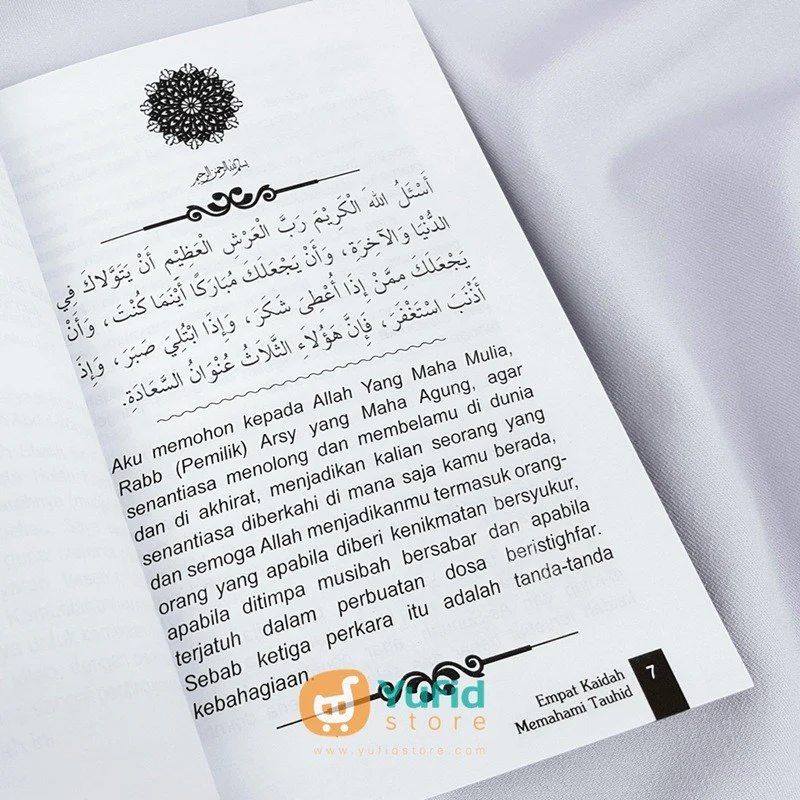 بسم الله الرحمن الرحيم
أَسْئَلُ اللهَ الْكَرِيْمَ رَبَّ الْعَرْشِ الْعَظِيْمِ أَنْ يَتَوَلَّاكَ فِي
الدُّنْيَا وَالْآخِرَةِ، وَأَنْ يَجْعَلَكَ مُبَارَكًا أَيْنَمَا كُنْتَ، وَأَنْ
يَجْعَلَكَ مِمَّنْ إِذَا أُعْطِيَ شَكَرَ، وَإِذَا ابْتُلِيَ صَبَرَ، وَإِذَا
أَذْنَبَ اسْتَغْفَرَ، فَإِنَّ هَؤُلَاءِ الثَّلَاثُ عُنْوَانُ السَّعَادَةِ.
Aku memohon kepada Allah Yang Maha Mulia,
Rabb (Pemilik) Arsy yang Maha Agung, agar
senantiasa menolong dan membelamu di dunia
dan di akhirat, menjadikan kalian seorang yang
senantiasa diberkahi di mana saja kamu berada,
dan semoga Allah menjadikanmu termasuk orang-
orang yang apabila diberi kenikmatan bersyukur,
apabila ditimpa musibah bersabar dan apabila
terjatuh dalam perbuatan dosa beristighfar.
Sebab ketiga perkara itu adalah tanda-tanda
kebahagiaan.
Yufid
store
www.yufidstore.com
Empat Kaidah
Memahami Tauhid
7